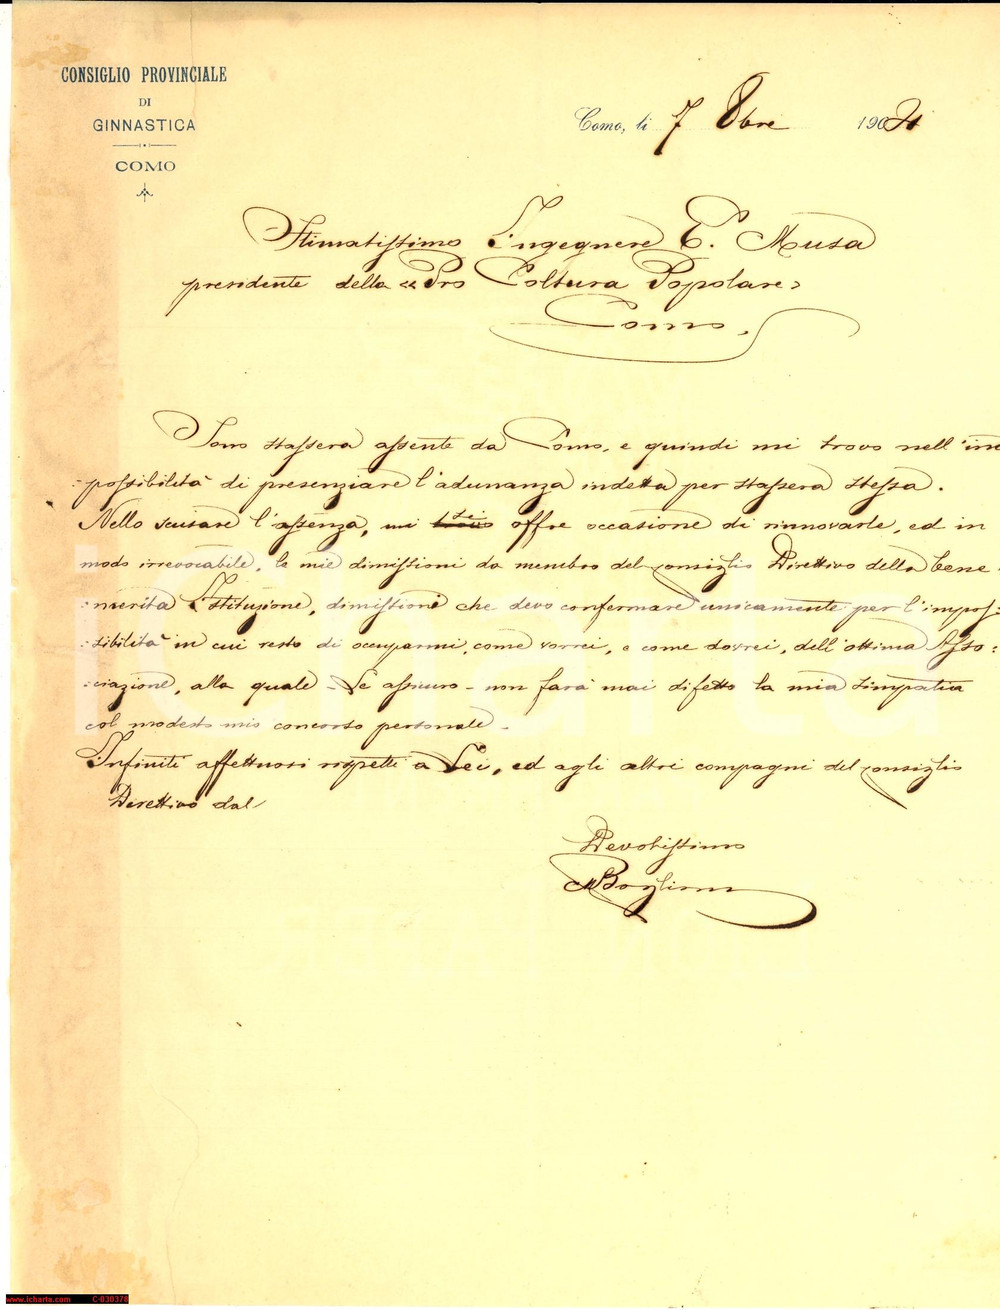 CONSIGLIO PROVINCIALE
DI
GINNASTICA
COMO
Como, li 7 8bre 1904
Stimatissimo Ingegnere E. Musa
presidente della « Pro Coltura Popolare »
Como.
Sono stassera assente da Como, e quindi mi trovo nell'im
possibilità di presenziare l'adunanza indetta per stassera stessa.
Nello scusare l'assenza, mi si offre occasione di rinnovarle, ed in
modo irrevocabile, le mie dimissioni da membro del consiglio Direttivo della bene=
=merita Istituzione, dimissioni che devo confermare unicamente per l'impos=
=sibilità in cui resto di occuparmi, come vorrei, e come dovrei, dell'ottima Asso=
=ciazione, alla quale - Le assicuro - non farà mai difetto la mia simpatia
col modesto mio concorso personale.
Infiniti affettuosi rispetti a Lei, ed agli altri compagni del consiglio
Direttivo dal
Devotissimo
icharta
www.icharta.com C-030370